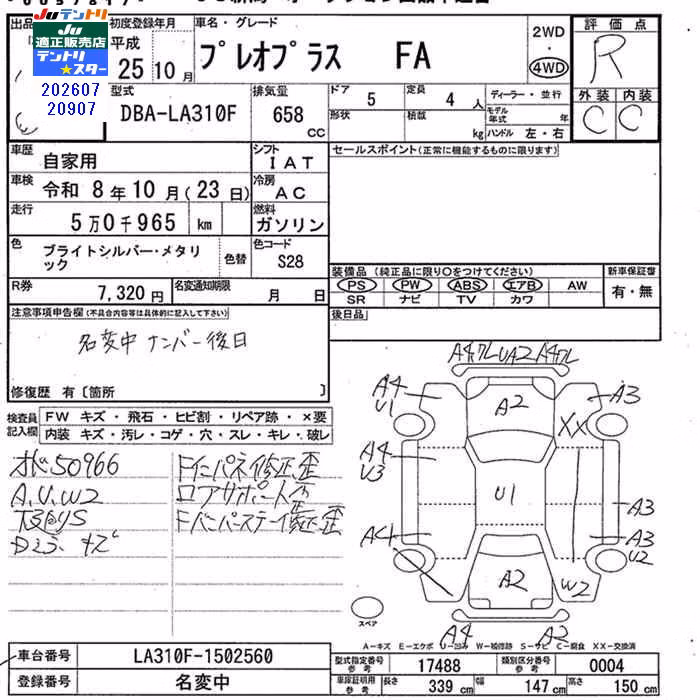 Juテントリ Juテントリ
適正販売店
テントリ
★スター
202607
20907
出品
初度登録年月
平成
25 10 月
車名・グレード
プレオプラス FA
2WD
4WD
評価点
R
外装 内装
C C
型式
DBA-LA310F
排気量
658
CC
ドア
5
定員
4 人
形状
積載
kg
ディーラー・並行
モデル年式
年
ハンドル 左・右
車歴
自家用
シフト
I A T
車検
令和 8 年 10 月 (23 日)
冷房
A C
走行
5 万 0 千 965 km
燃料
ガソリン
色
ブライトシルバー・メタリック
色替
色コード
S28
R券
7,320 円
名変通知期限
月 日
セールスポイント(正常に機能するものに限ります)
装備品 (純正品に限り○をつけてください)
PS PW ABS エアB AW
SR ナビ TV カワ
新車保証書
有・無
後日品
注意事項申告欄 (不具合内容等は具体的に記入して下さい)
名変中 ナンバー後日
修復歴 有〔箇所 〕
検査員記入欄
FW キズ・飛石・ヒビ割・リペア跡・×要
内装 キズ・汚レ・コゲ・穴・スレ・キレ・破レ
50966
A.U.W2
Fインパネ修正歪
ロアサポート歪
Fバンパーステー修正歪
UA2
A2
A4
U1
A3
XX
A4
U3
U1
A3
A4
A3
U2
A2
W2
A4
A2
スペア
A-キズ E-エクボ U-凹み W-補修跡 S-サビ C-腐食 XX-交換済
車台番号
LA310F-1502560
登録番号
名変中
型式指定番号
参考
17488
類別区分番号
参考
0004
車庫証明用
参考
長さ
339 cm
幅
147 cm
高さ
150 cm